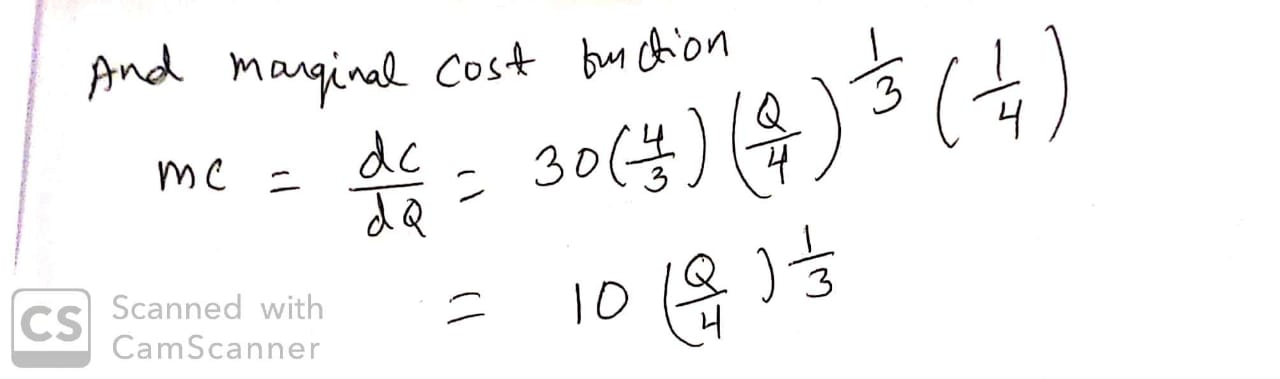 And marginal cost function
mc = dc/dQ = 30(4/3)(Q/4)^1/3 (1/4)
= 10(Q/4)^1/3
CS Scanned with
CamScanner